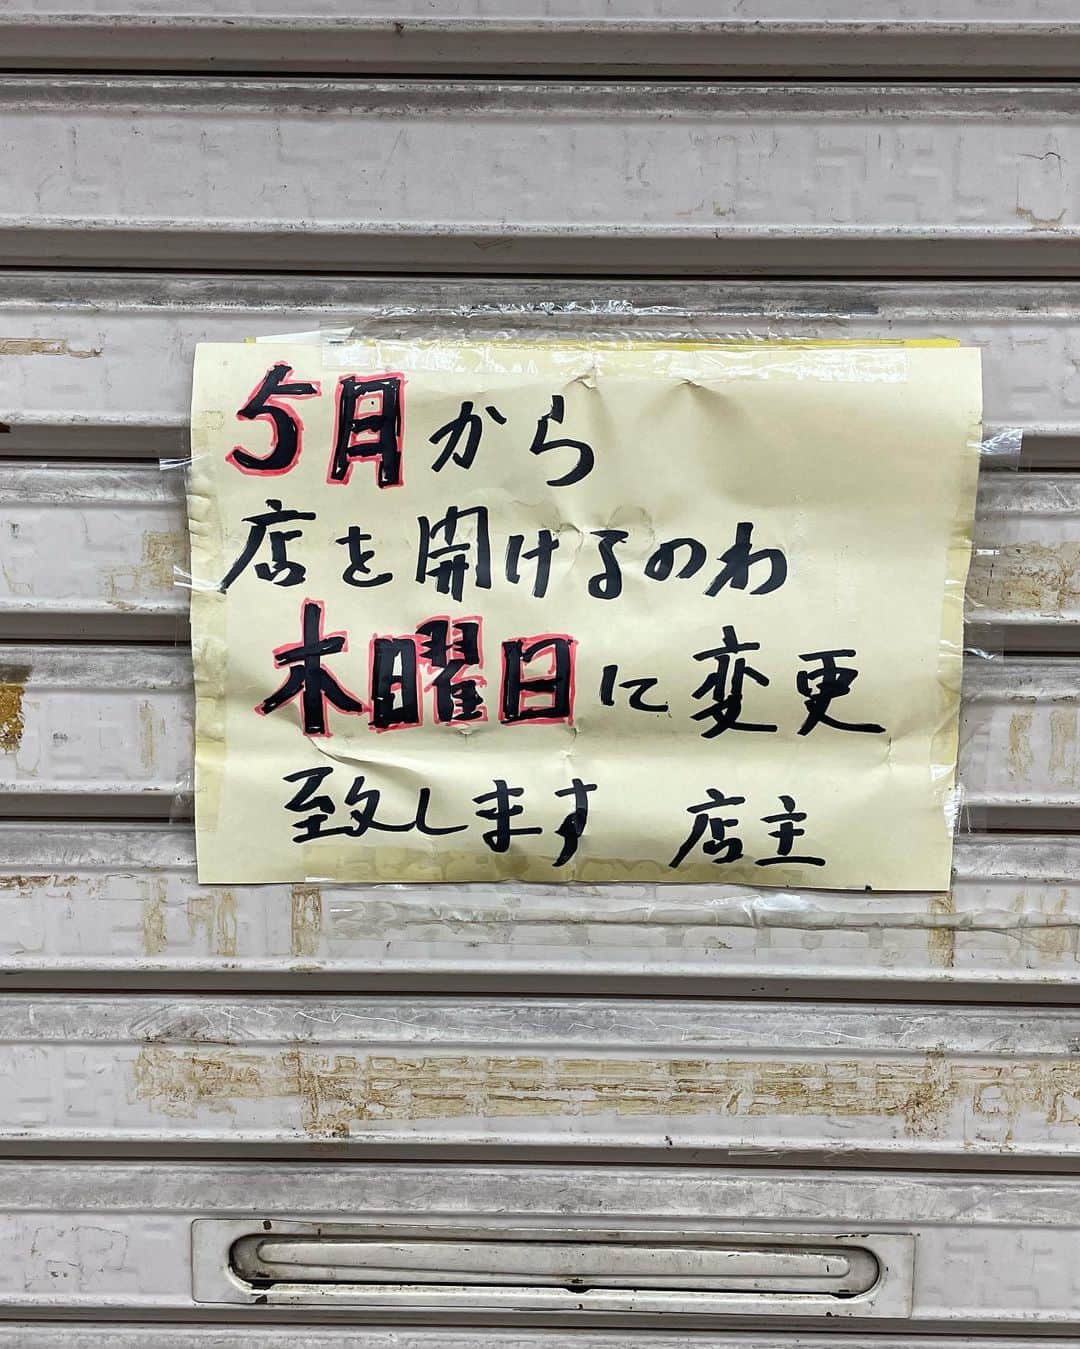 5月から
店を開けるのわ
木曜日に変更
致します 店主